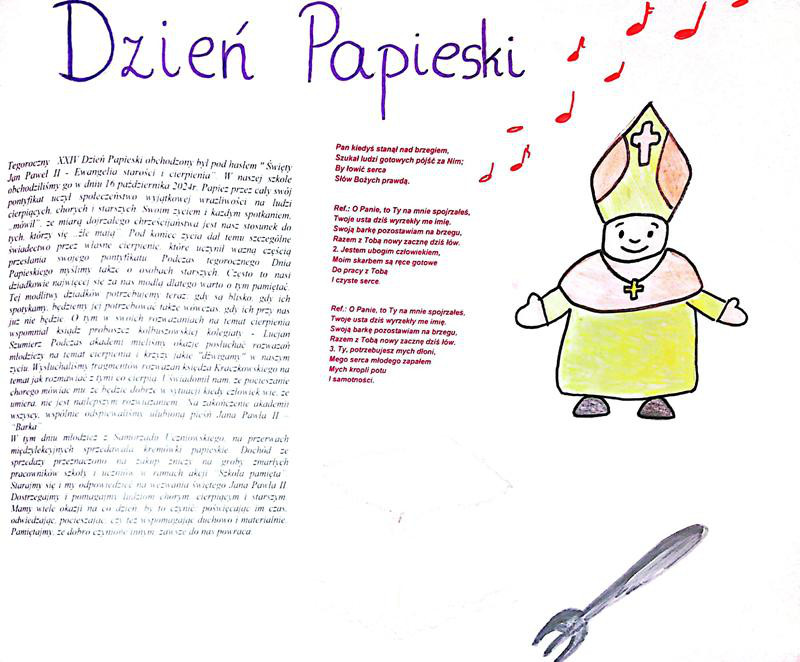 Dzień Papieski
Tegoroczny XXIV Dzień Papieski obchodzony był pod hasłem " Święty
Jan Paweł II - Ewangelia starości i cierpienia". W naszej szkole
obchodziliśmy go w dniu 16 października 2024r. Papież przez cały swój
pontyfikat uczył społeczeństwo wyjątkowej wrażliwości na ludzi
cierpiących, chorych i starszych. Swoim życiem i każdym spotkaniem,
„mówił”, że miarą dojrzałego chrześcijaństwa jest nasz stosunek do
tych, którzy się „źle mają”. Pod koniec życia dał temu szczególne
świadectwo przez własne cierpienie, które uczynił ważną częścią
przesłania swojego pontyfikatu. Podczas tegorocznego Dnia
Papieskiego myślimy także o osobach starszych. Często to nasi
dziadkowie najwięcej się za nas modlą dlatego warto o tym pamiętać.
Tej modlitwy dziadków potrzebujemy teraz, gdy są blisko, gdy ich
spotykamy, będziemy jej potrzebować także wówczas, gdy ich przy nas
już nie będzie. O tym w swoich rozważaniach na temat cierpienia
wspomniał ksiądz proboszcz kolbuszowskiej kolegiaty - Lucjan
Szumierz. Podczas akademii mieliśmy okazję posłuchać rozważań
młodzieży na temat cierpienia i krzyży jakie "dźwigamy" w naszym
życiu. Wysłuchaliśmy fragmentów rozważań księdza Kraczkowskiego na
temat jak rozmawiać z tymi co cierpią. Uświadomił nam, że pocieszanie
chorego mówiąc mu że będzie dobrze w sytuacji kiedy człowiek wie, że
umiera, nie jest najlepszym rozwiązaniem. Na zakończenie akademii
wszyscy, wspólnie odśpiewaliśmy ulubioną pieśń Jana Pawła II –
"Barka"
W tym dniu młodzież z Samorządu Uczniowskiego, na przerwach
międzylekcyjnych sprzedawała kremówki papieskie. Dochód ze
sprzedaży przeznaczono na zakup zniczy na groby zmarłych
pracowników szkoły i uczniów w ramach akcji Szkoła pamięta
Starajmy się i my odpowiedzieć na wezwania świętego Jana Pawła II.
Dostrzegajmy i pomagajmy ludziom chorym, cierpiącym i starszym.
Mamy wiele okazji na co dzień, by to czynić, poświęcając im czas,
odwiedzając, pocieszając, czy też wspomagając duchowo i materialnie.
Pamiętajmy, że dobro czynione innym, zawsze do nas powraca.
Pan kiedyś stanął nad brzegiem,
Szukał ludzi gotowych pójść za Nim;
By łowić serca
Słów Bożych prawdą.
Ref.: O Panie, to Ty na mnie spojrzałeś,
Twoje usta dziś wyrzekły me imię.
Swoją barkę pozostawiam na brzegu,
Razem z Tobą nowy zacznę dziś łów.
2. Jestem ubogim człowiekiem,
Moim skarbem są ręce gotowe
Do pracy z Tobą
I czyste serce.
Ref.: O Panie, to Ty na mnie spojrzałeś,
Twoje usta dziś wyrzekły me imię.
Swoją barkę pozostawiam na brzegu,
Razem z Tobą nowy zacznę dziś łów.
3. Ty, potrzebujesz mych dłoni,
Mego serca młodego zapałem
Mych kropli potu
I samotności.